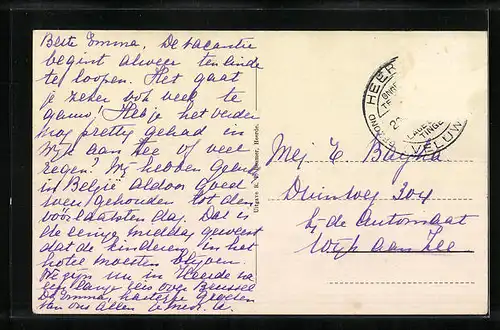 Beste Emma, De vacantie
begint alweer ten einde
te loopen. Het gaat
je zeker ook veel te
gauw! Heb je het verder
nog prettig gehad in
Wijk aan Zee of veel
regen? Wij hebben
in België aldoor goed
weer gehouden tot den
vóórlaatsten dag. Dat is
de eenige middag geweest
dat de kinderen in het
hotel moesten blijven.
We zijn nu in Heerde na
een lange reis over Brussel
Dag Emma, hartelijk
van ons allen
Uitgave Heerde.
HEER
VELUW
Mej E
Duinweg 304
bij de Automaat
Wijk aan Zee